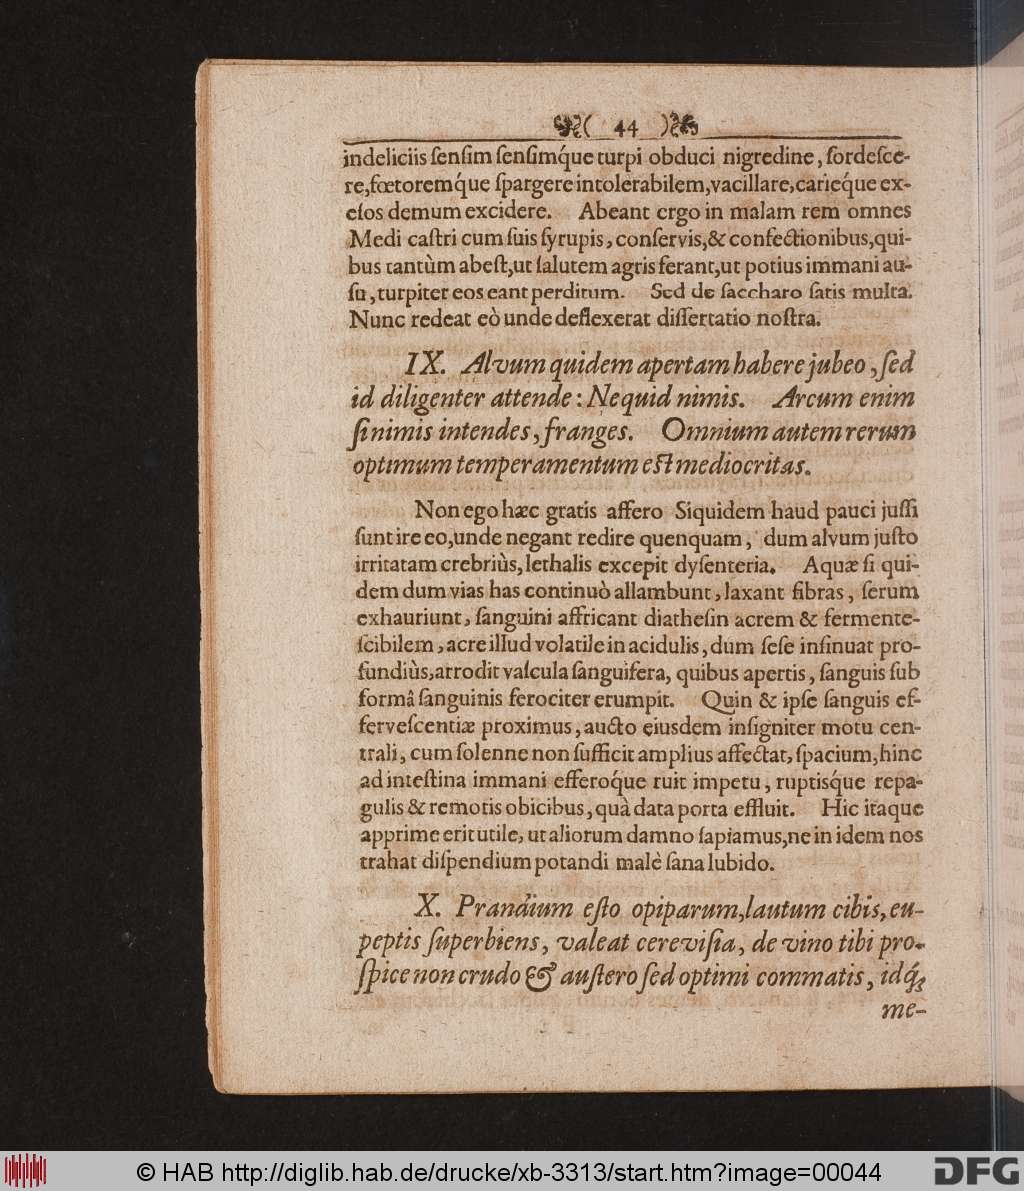 ( 44 )
indeliciis ſenſim ſenſimq́ue turpi obduci nigredine, ſordeſce-
re, fœtoremq́ue ſpargere intolerabilem, vacillare, carieq́ue ex-
eſos demum excidere. Abeant ergo in malam rem omnes
Medi caſtri cum ſuis ſyrupis, conſervis, & confectionibus, qui-
bus tantùm abeſt, ut ſalutem agris ferant, ut potius immani au-
ſu, turpiter eos eant perditum. Sed de ſaccharo ſatis multa.
Nunc redeat eò unde deflexerat diſſertatio noſtra.
IX. Alvum quidem apertam habere jubeo, ſed
id diligenter attende: Ne quid nimis. Arcum enim
ſi nimis intendes, franges. Omnium autem rerum
optimum temperamentum eſt mediocritas.
Non ego hæc gratis affero Siquidem haud pauci juſſi
ſunt ire eo, unde negant redire quenquam, dum alvum juſto
irritatam crebriùs, lethalis excepit dyſenteria. Aquæ ſi qui-
dem dum vias has continuò allambunt, laxant fibras, ſerum
exhauriunt, ſanguini affricant diatheſin acrem & fermente-
ſcibilem, acre illud volatile in acidulis, dum ſeſe inſinuat pro-
fundiùs, arrodit vaſcula ſanguifera, quibus apertis, ſanguis ſub
formâ ſanguinis ferociter erumpit. Quin & ipſe ſanguis ef-
ferveſcentiæ proximus, aucto ejusdem inſigniter motu cen-
trali, cum ſolenne non ſufficit amplius affectat, ſpacium, hinc
ad inteſtina immani efferoq́ue ruit impetu, ruptisq́ue repa-
gulis & remotis obicibus, quà data porta effluit. Hic itaque
apprime erit utile, ut aliorum damno ſapiamus, ne in idem nos
trahat diſpendium potandi malè ſana lubido.
X. Prandium eſto opiparum, lautum cibis, eu-
peptis ſuperbiens, valeat cereviſia, de vino tibi pro-
ſpice non crudo & auſtero ſed optimi commatis, idq́;
me-
© HAB http://diglib.hab.de/drucke/xb-3313/start.htm?image=00044
DFG